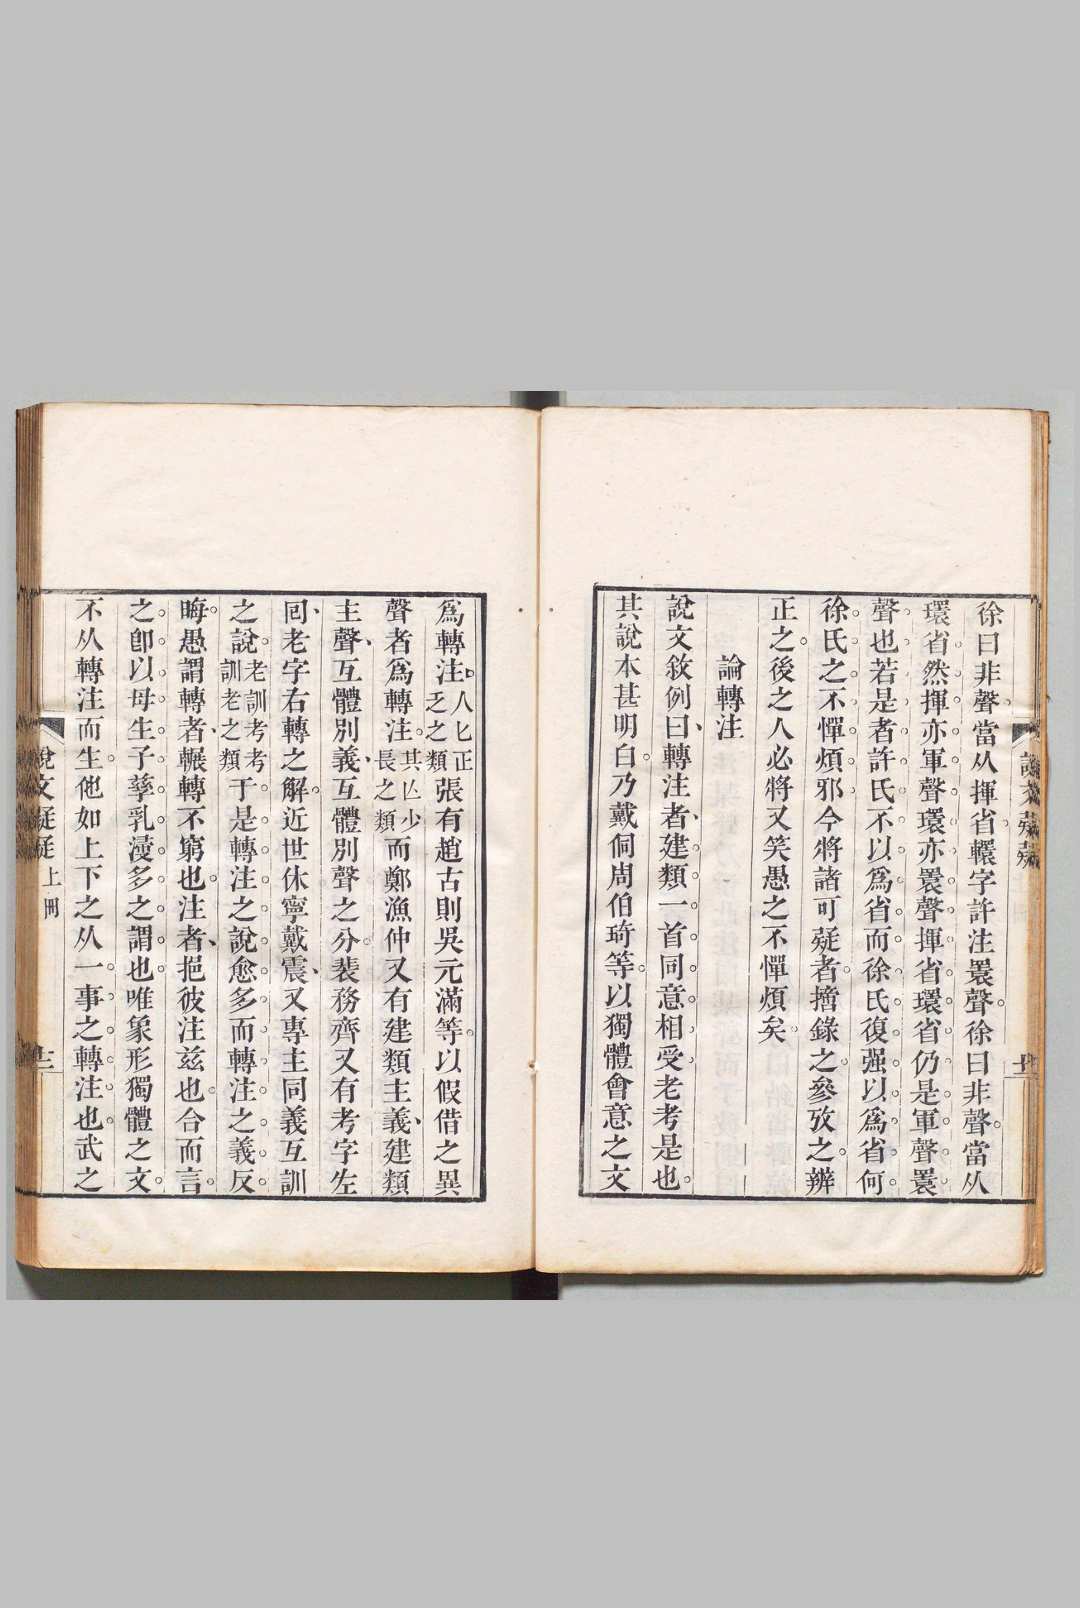 徐曰非聲當从揮省轘字許注睘聲徐曰非聲當从
環省然揮亦軍聲環亦睘聲揮省環省仍是軍聲睘
聲也若是者許氏不以爲省而徐氏復强以爲省何
徐氏之不憚煩邪今將諸可疑者擔錄之參攷之辨
正之後之人必將又笑愚之不憚煩矣
論轉注
說文敘例曰轉注者建類一首同意相受老考是也
其說本甚明白乃戴侗周伯琦等以獨體會意之文
爲轉注人匕正乏之類張有趙古則吳元滿等以假借之異
聲者爲轉注其亾少長之類而鄭漁仲又有建類主義建類
主聲互體別義互體別聲之分裴務齊又有考字左
回老字右轉之解近世休寧戴震又專主同義互訓
之說老訓考考訓老之類于是轉注之說愈多而轉注之義反
晦愚謂轉者輾轉不窮也注者挹彼注茲也合而言
之卽以母生子孳乳漫多之謂也唯象形獨體之文
不从轉注而生他如上下之从一事之轉注也武之
說文疑疑 上冊 十二